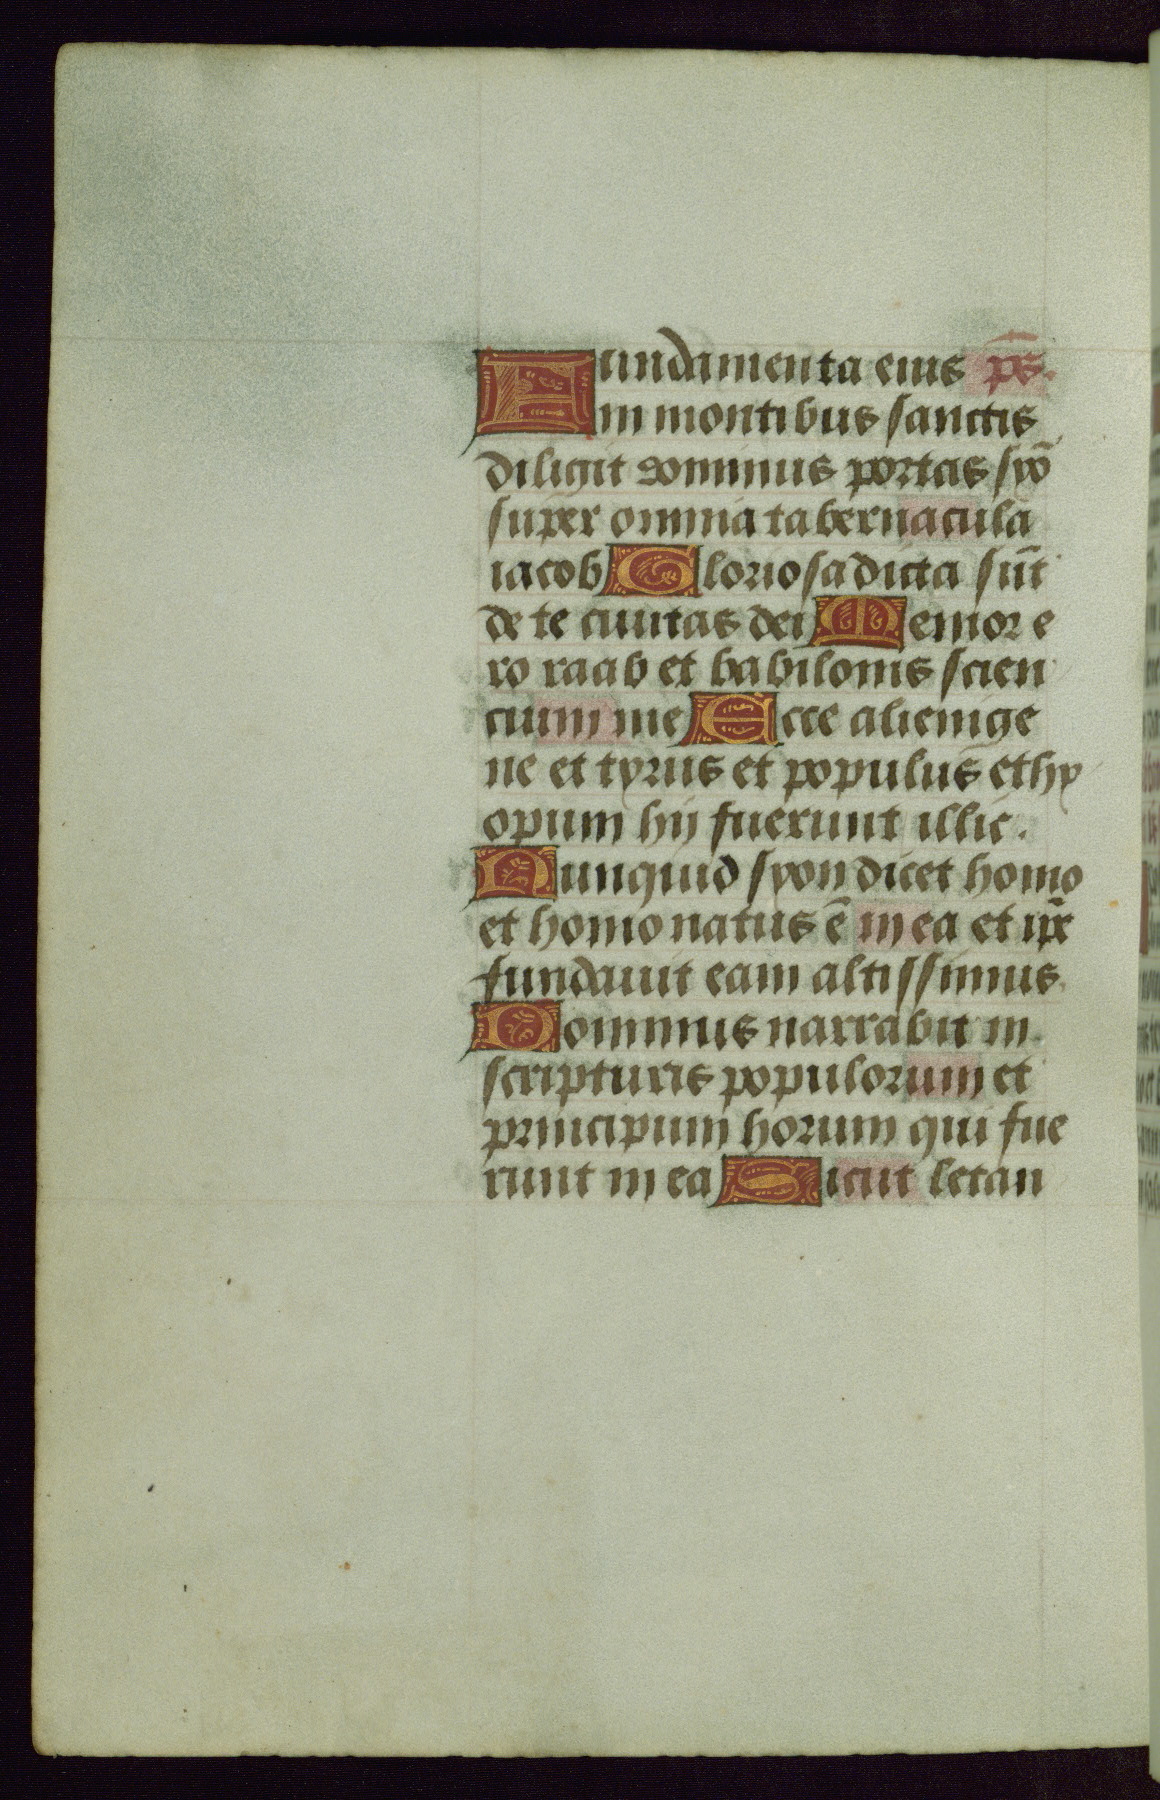 Fundamenta eius ps̄.
in montibus sanctis
diligit dominus portas syō
super omnia tabernacula
iacob Gloriosa dicta sūt
de te ciuitas dei Memor e
ro raab et babilonis scien
cium me Ecce alienige
ne et tyrus et populus ethy
opum hij fuerunt illic.
Nunquid syon dicet homo
et homo natus ē in ea et ip̄e
fundauit eam altissimus
Dominus narrabit in
scripturis populorum et
principum horum qui fue
runt in ea Sicut letan